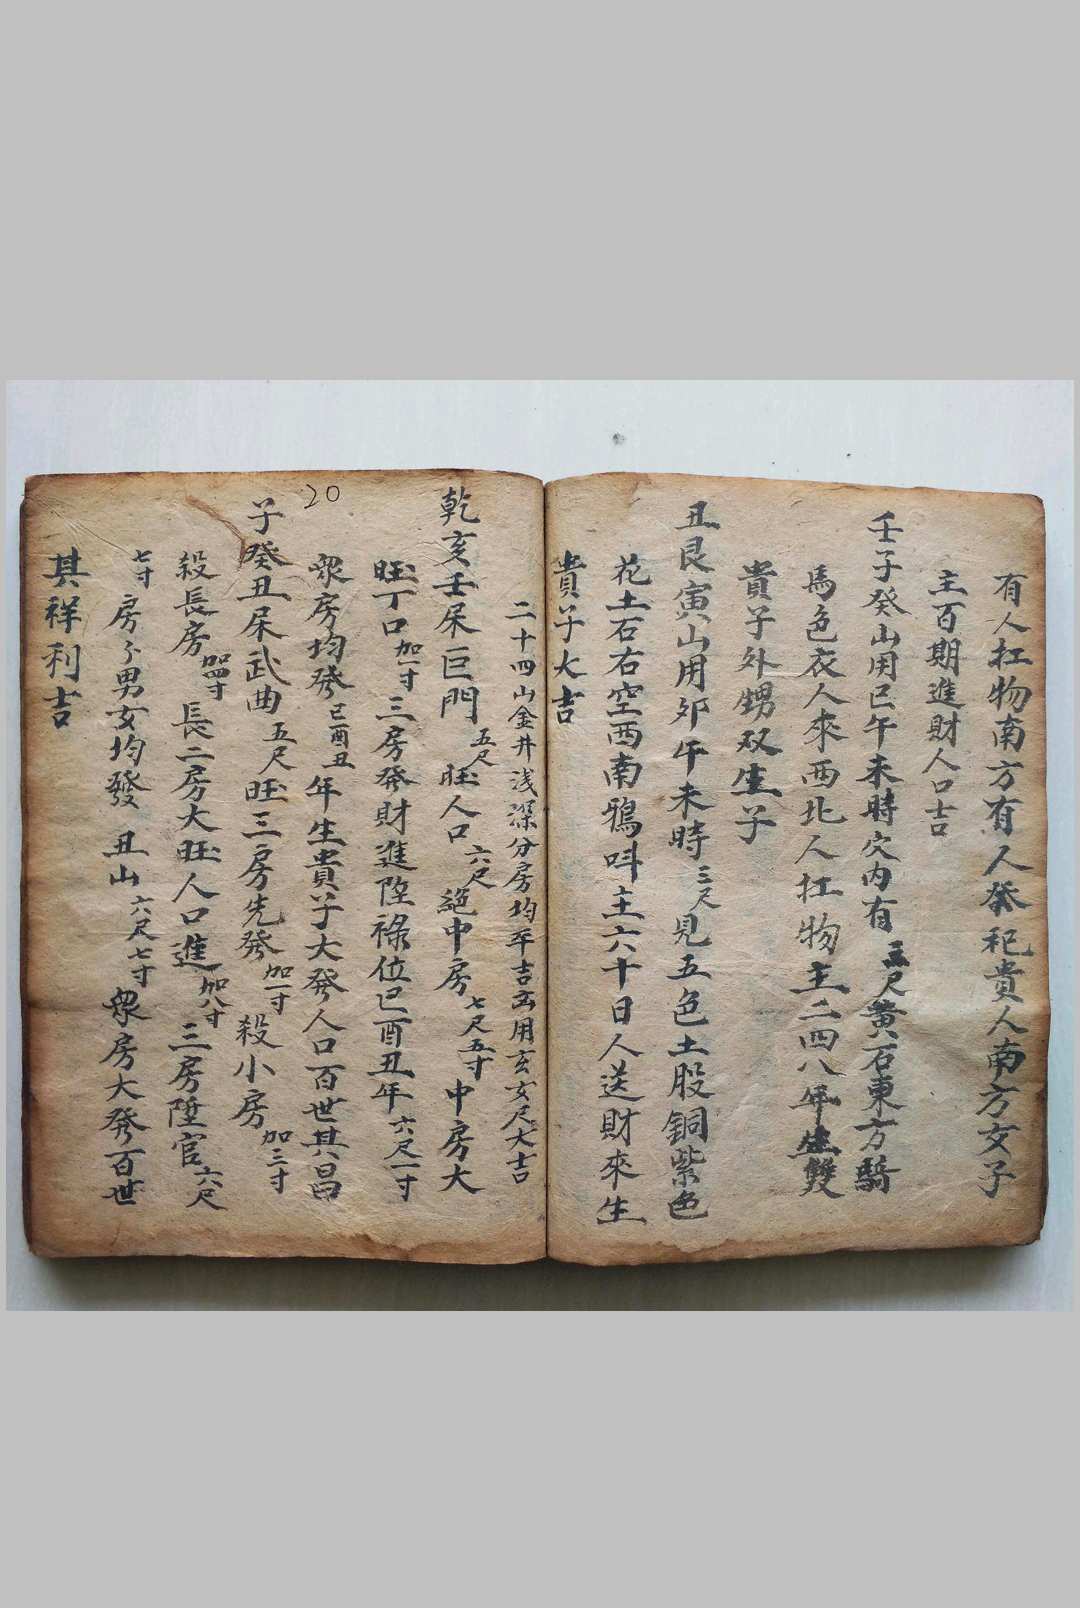 有人扛物南方有人癸祀貴人南方女子
主百期進財人口吉
壬子癸山用巳午未時穴内有三尺黄石東方騎
馬色衣人來西北人扛物主二四八年生雙
貴子外甥双生子
丑艮寅山用卯午未時三尺見五色土股銅紫色
花土石右空西南鴉呌主六十日人送財來生
貴子大吉
二十四山金井浅深分房均平吉凶用玄女尺大吉
乾亥壬屎巨門五尺旺人口六尺絕中房七尺五寸中房大
旺丁口加一寸三房癸財進陞祿位巳酉丑年六尺一寸
衆房均癸巳酉丑年生貴子大癸人口百世其昌
20
子癸丑屎武曲五尺旺三房先發加一寸殺小房加三寸
殺長房加四寸長二房大旺人口進加八寸三房陞官六尺
七寸房分男女均發丑山六尺七寸衆房大癸百世
其祥利吉